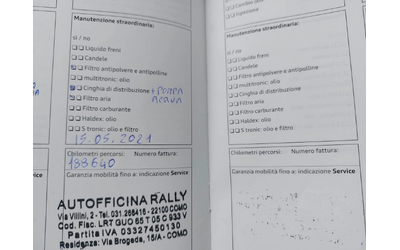 Manutenzione straordinaria:
si / no
Liquido freni
Candele
Filtro antipolvere e antipolline
multitronic: olio
Cinghia di distribuzione + POMPA ACQUA
Filtro aria
Filtro carburante
Haldex: olio
S tronic: olio e filtro
15.05.2021
Chilometri percorsi: Numero fattura:
188640
Garanzia mobilità fino a: indicazione Service
AUTOFFICINA RALLY
Via Villini, 2 - Tel. 031.268416 - 22100 COMO
Cod. Fisc. LRT GUO 65 T 05 G 933 V
Partita IVA 03327450130
Residenza: Via Brogeda, 15/A - COMO
Manutenzione straordinaria:
si / no
Liquido freni
Candele
Filtro antipolvere e antipolline
multitronic: olio
Cinghia di distribuzione
Filtro aria
Filtro carburante
Haldex: olio
S tronic: olio e filtro
Chilometri percorsi: Numero fattura:
Garanzia mobilità fino a: indicazione Service